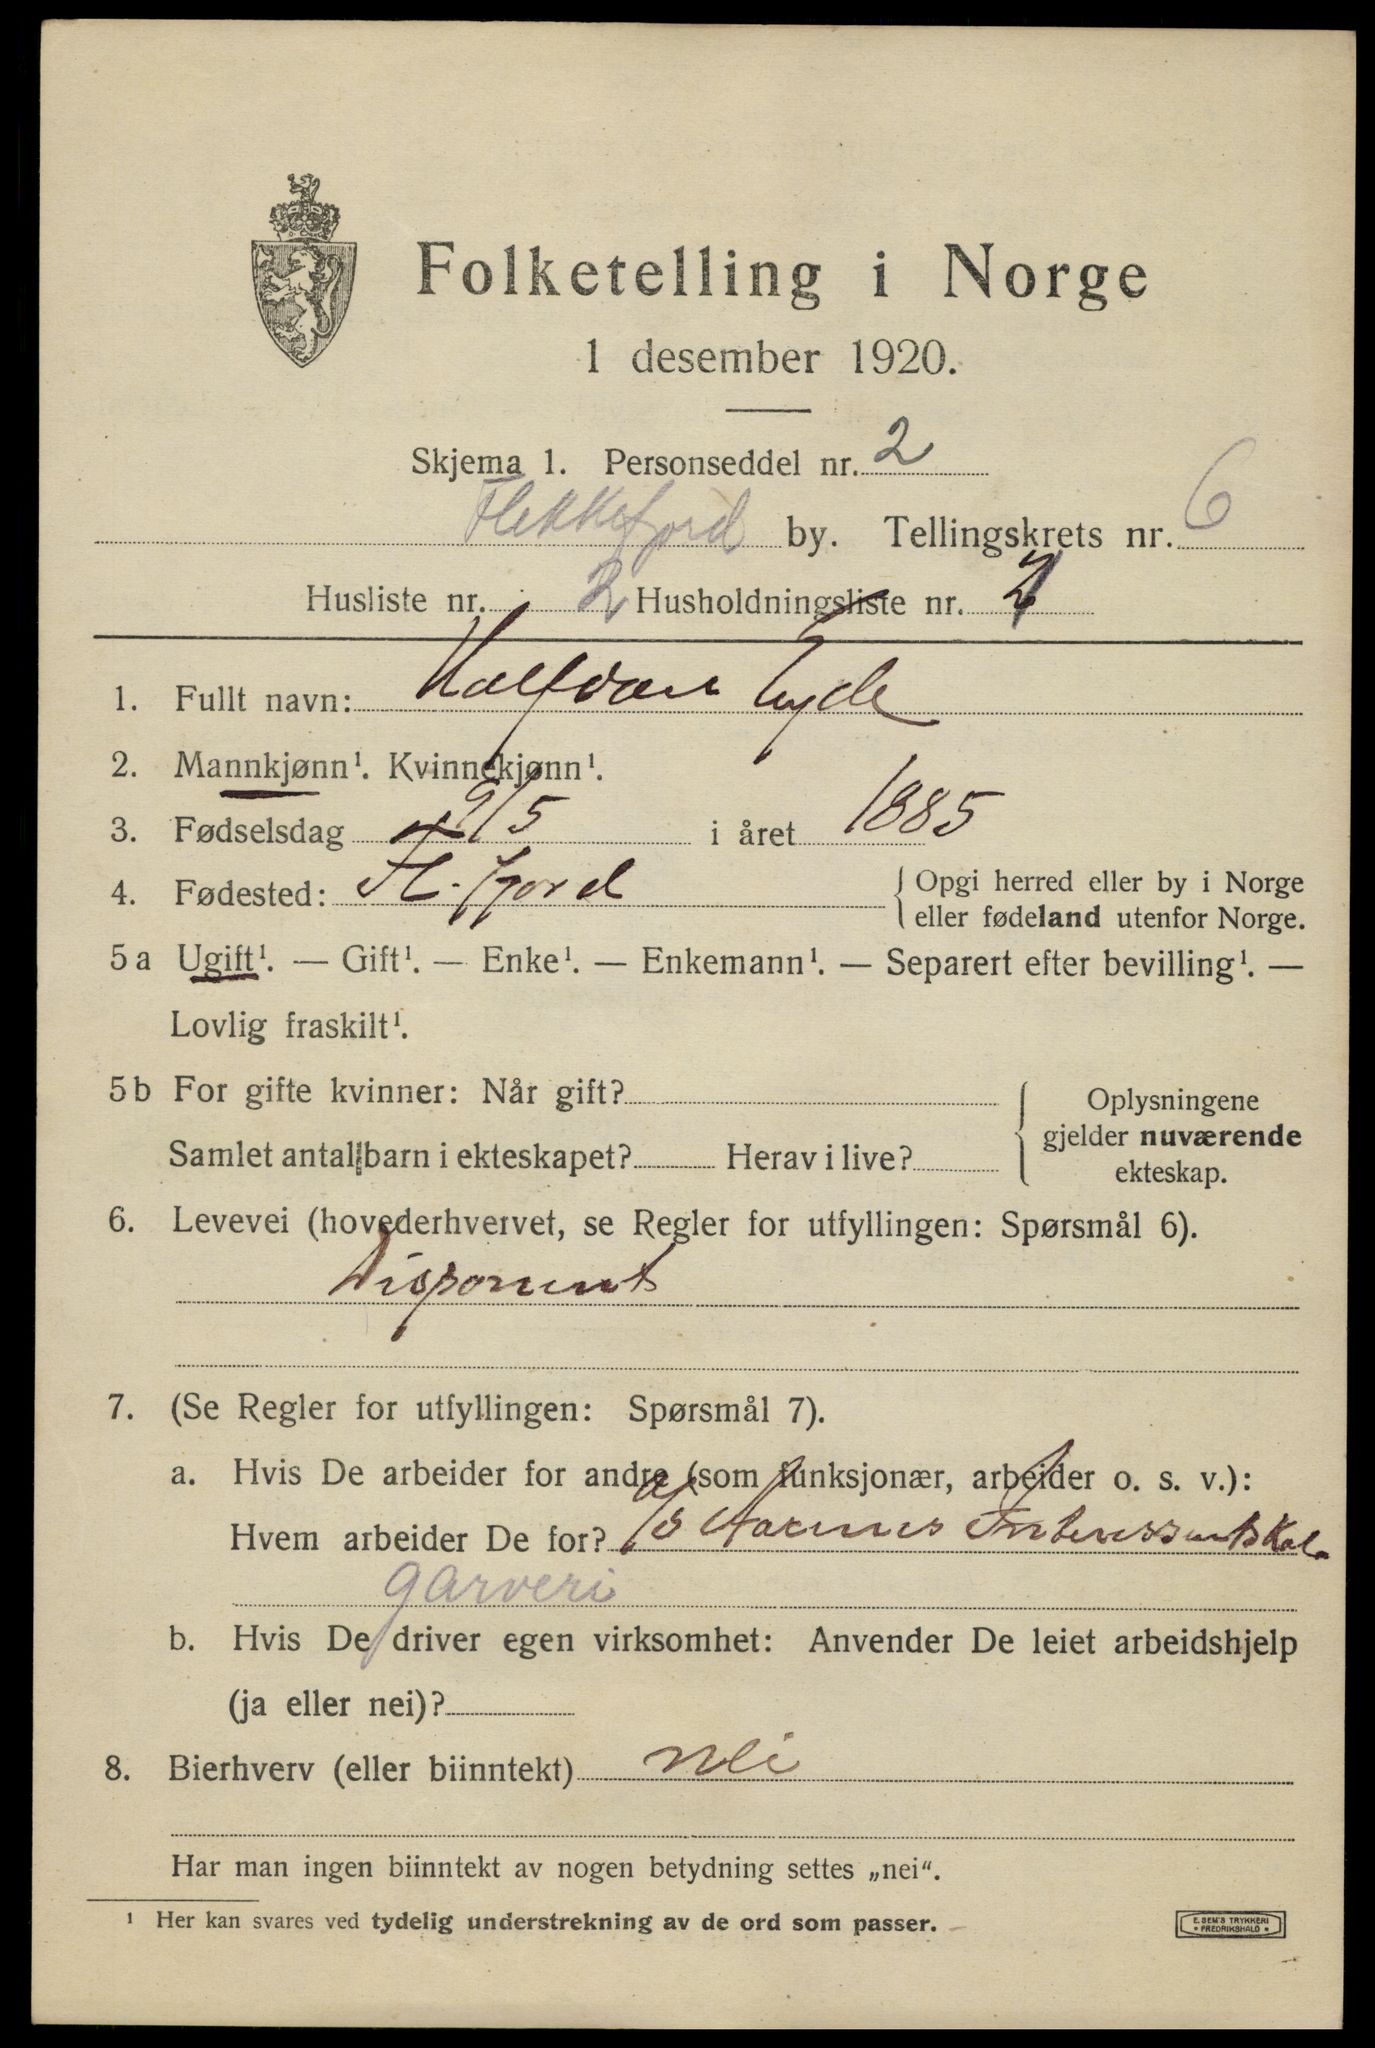 Folketelling i Norge
1 desember 1920.
Skjema 1. Personseddel nr. 2
Flekkefjord by. Tellingskrets nr. 6
Husliste nr. 2 Husholdningsliste nr.
1. Fullt navn: Halfdan Eyde
2. Mannkjønn¹. Kvinnekjønn¹.
3. Fødselsdag 9/5 i året 1885
4. Fødested: Fl.fjord { Opgi herred eller by i Norge
eller fødeland utenfor Norge.
5a Ugift¹. — Gift¹. — Enke¹. — Enkemann¹. — Separert efter bevilling¹. —
Lovlig fraskilt¹.
5b For gifte kvinner: Når gift? { Oplysningene
gjelder nuværende
Samlet antal barn i ekteskapet? Herav i live?
ekteskap.
6. Levevei (hovederhvervet, se Regler for utfyllingen: Spørsmål 6).
Disponent
7. (Se Regler for utfyllingen: Spørsmål 7).
a. Hvis De arbeider for andre (som funksjonær, arbeider o. s. v.):
Hvem arbeider De for? A/S Aarenes Interessentskal.
garveri
b. Hvis De driver egen virksomhet: Anvender De leiet arbeidshjelp
(ja eller nei)?
8. Bierhverv (eller biinntekt) nei
Har man ingen biinntekt av nogen betydning settes „nei“.
¹ Her kan svares ved tydelig understrekning av de ord som passer.
E. SEM'S TRYKKERI
• FREDRIKSHALD •